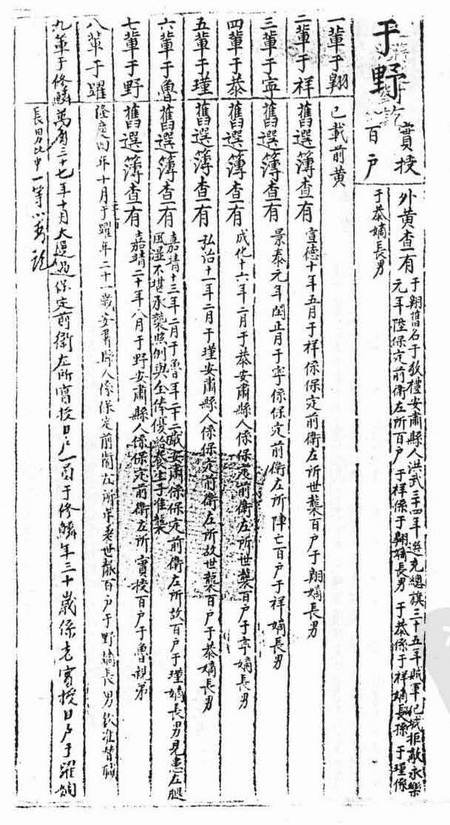 于野
實授百户
外黄查有
于翱舊名于敬禮安肅縣人洪武三十四年選充總旗三十五年
元年陞保定前衛左所百户于祥係于翱嫡長男于恭係于祥嫡長孫于瑾係
于恭嫡長男
一輩于翱 已載前黄
二輩于祥 舊選簿查有 宣德十年五月于祥係保定前衛左所世襲百户于翱嫡長男
三輩于寧 舊選簿查有 景泰元年閏正月于寧係保定前衛左所陣亡百户于祥嫡長男
四輩于恭 舊選簿查有 成化十六年二月于恭安肅縣人係保定前衛左所世襲百户于寧嫡長男
五輩于瑾 舊選簿查有 弘治十一年二月于瑾安肅縣人係保定前衛左所故世襲百户于恭嫡長男
六輩于魯 舊選簿查有 嘉靖十三年二月于魯年二十二歲安肅係保定前衛左所故百户于瑾嫡長男見患左腿
風濕不堪承襲照例與全俸優養生子准襲
七輩于野 舊選簿查有 嘉靖二十年八月于野安肅縣人係保定前衛左所實授百户于魯親弟
八輩于躍 隆慶四年十月于躍年二十一歲安肅縣人係保定前衛左所年老世襲百户于野嫡長男
九輩于修麟 萬曆二十七年十月大選過保定前衛左所實授百户一員于修麟年三十歲係老實授百户于躍嫡
長男比中一等